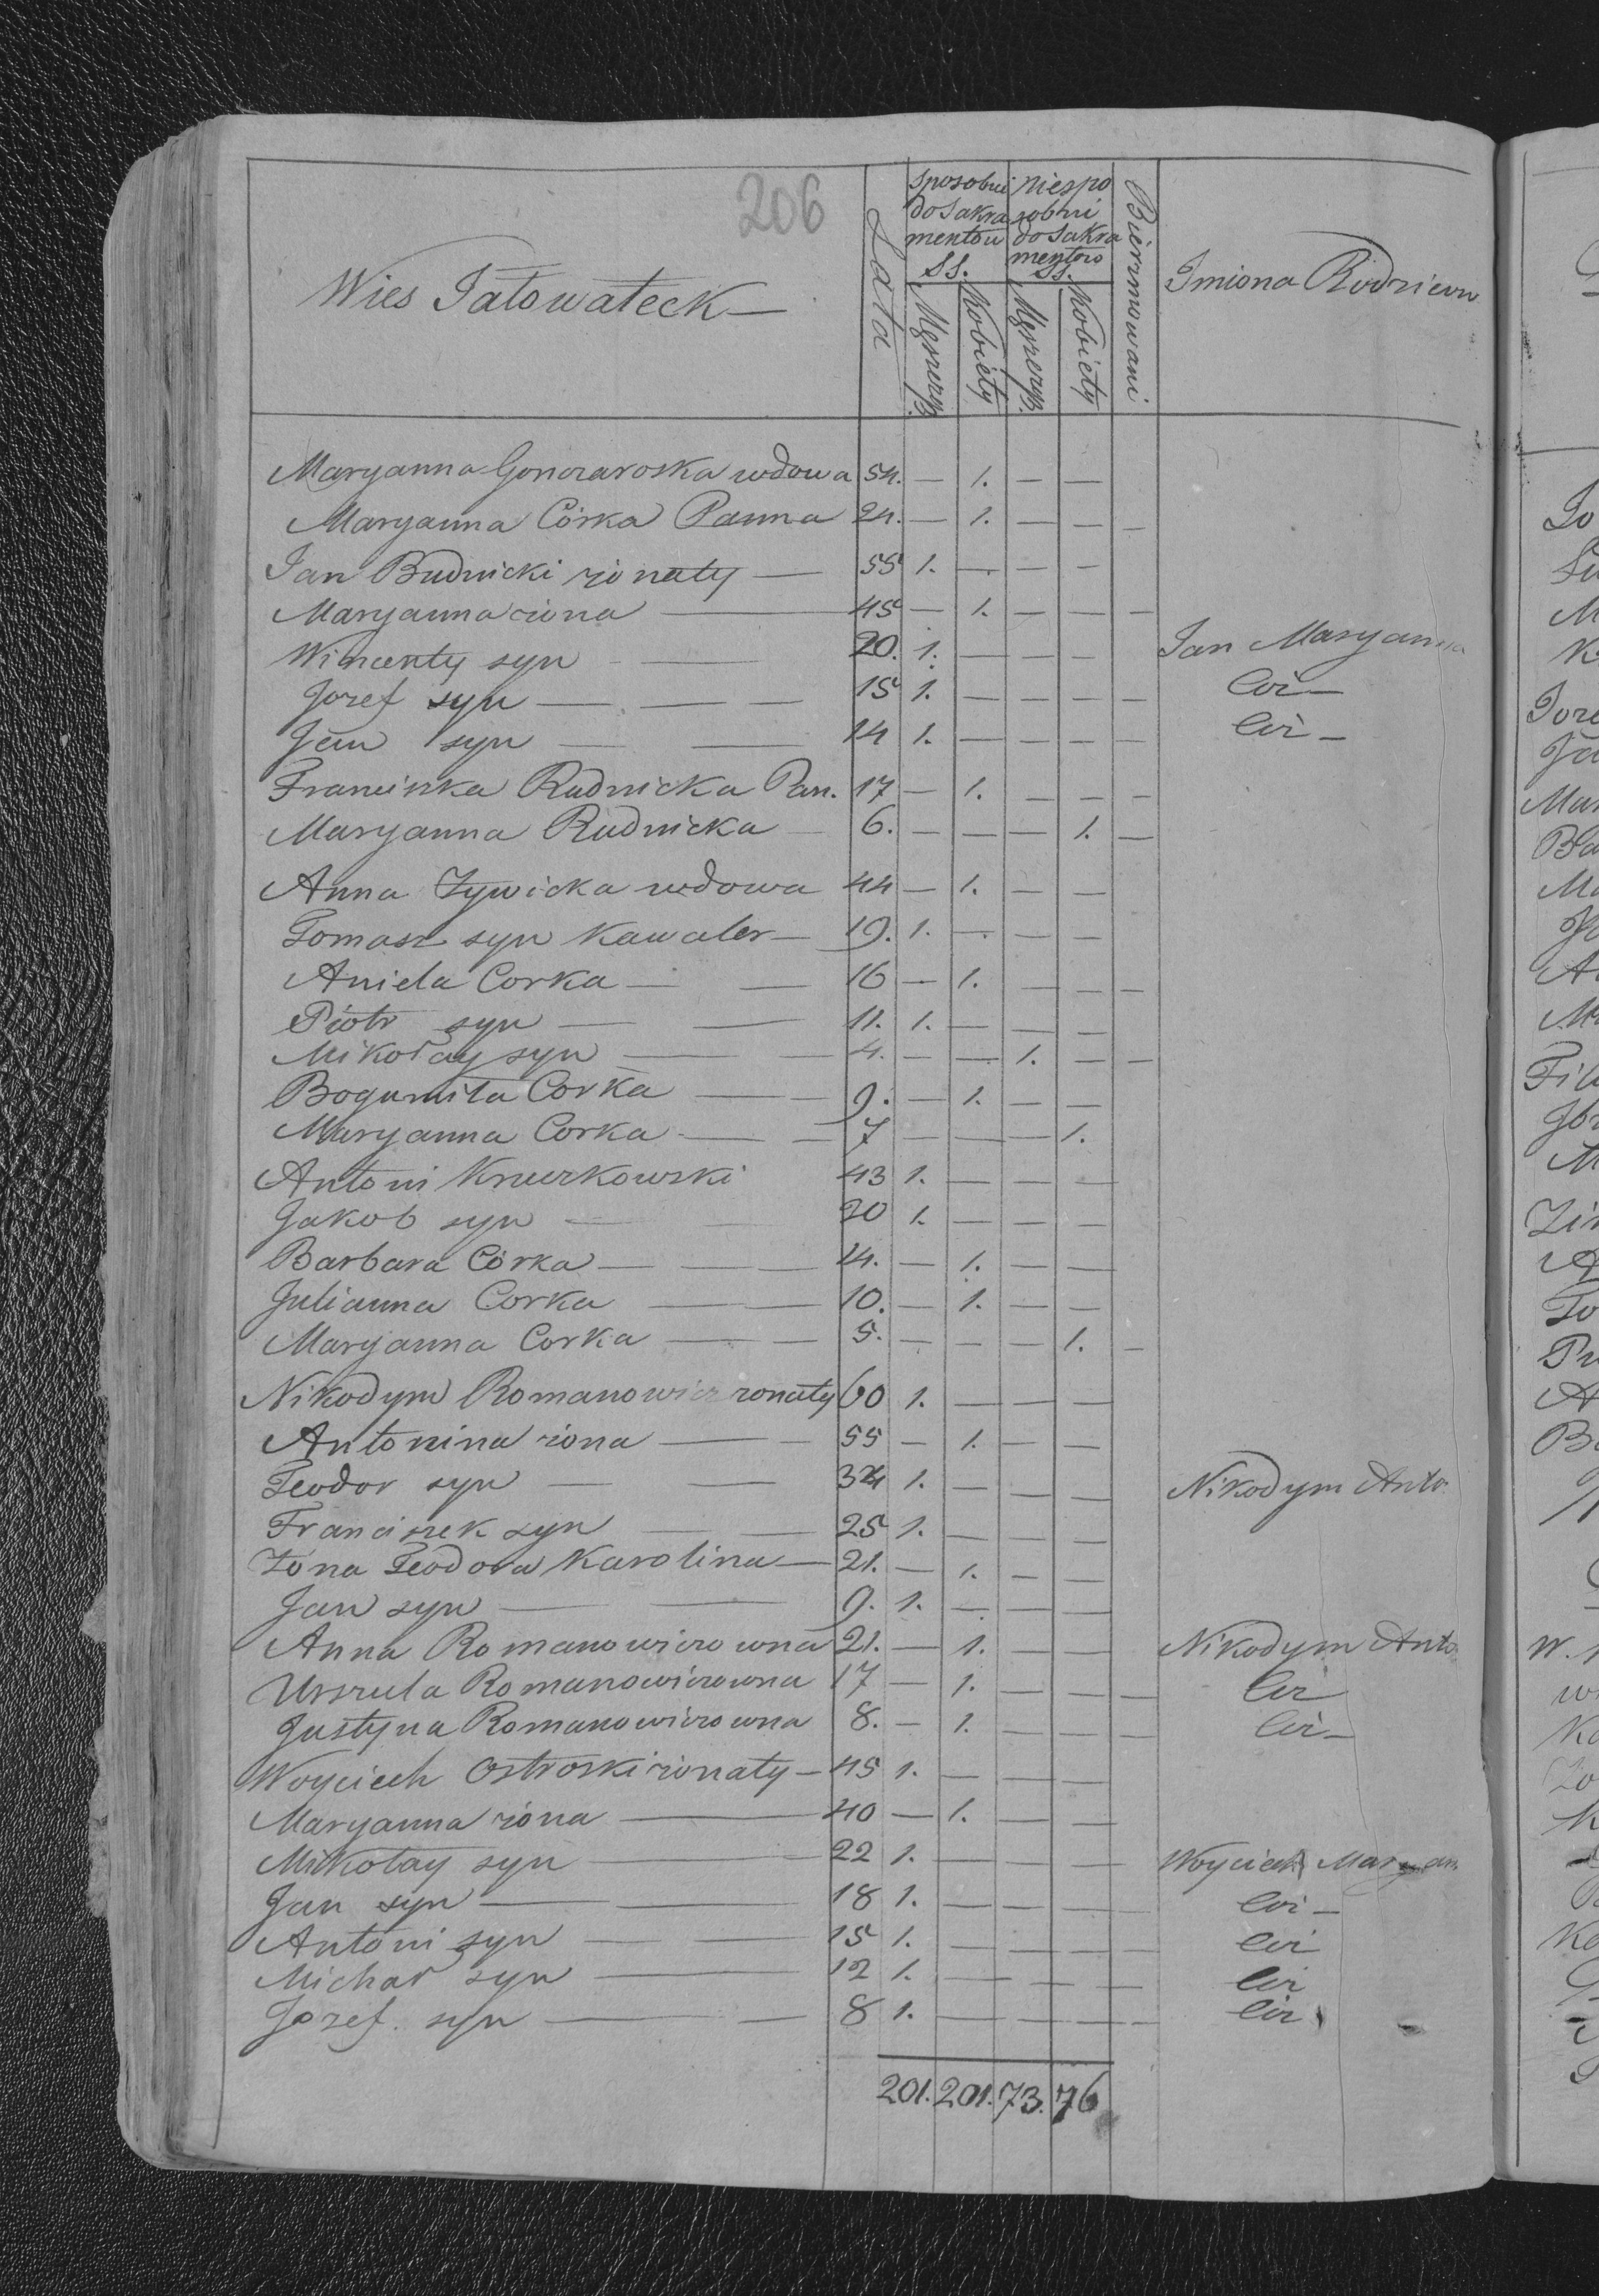 206
Wies Jatowateck —
Lata
sposobni do Sakra mentow SS.
niespo sobni do Sakra mentow SS.
Bierzmowani
Imiona Rodzicow
Męszczyz. Kobiety Męszczyz. Kobiety
Maryanna Gonczaroska wdowa 54. — 1. — —
Maryanna Córka Panna 24. — 1. — — —
Jan Budnicki żonaty — 55 1. — — —
Maryanna żona — 45 — 1. — — —
Wincenty syn — 20. 1. — — — Jan Maryanna
Jozef syn — — — 15 1. — — — — Ciż —
Jan syn — — 14 1. — — — — Ciż —
Franciszka Rudnicka Pan. 17 — 1. — — —
Maryanna Rudnicka — 6. — — — 1. —
Anna Zywicka wdowa 44 — 1. — —
Tomasz syn Kawaler — 19. 1. — — —
Aniela Corka — — 16 — 1. — — —
Piotr syn — — 11. 1. — — —
Mikołay syn — — 4. — — 1. — —
Bogumiła Corka — — 9. — 1. — —
Maryanna Corka — — 7 — — — 1.
Antoni 43 1. — — —
Jakob syn — — 20 1. — — —
Barbara Córka — — — 14. — 1. — —
Julianna Corka — — 10. — 1. — —
Maryanna Corka — — 5. — — — 1. —
Nikodym Romanowicz żonaty 60 1. — — —
Antonina żona — — 55 — 1. — —
Teodor syn — — 34 1. — — — Nikodym Anto.
Franciszek syn — — 25 1. — — —
Zona Teodora Karolina — 21. — 1. — —
Jan syn — — 9. 1. — — —
Anna Romanowiczowna 21. — 1. — — Nikodym Anto
Urszula Romanowiczowna 17 — 1. — — — Ciż
Justyna Romanowiczowna 8. — 1. — — — Ciż —
Woyciech Ostroski żonaty — 45 1. — — —
Maryanna żona — 40 — 1. — —
Mikołay syn — — 22 1. — — — Woyciech Maryan
Jan syn — — 18 1. — — — Ciż —
Antoni syn — — 15 1. — — — — Ciż
Michał syn — 12 1. — — — Ciż
Jozef syn — — 8 1. — — — — Ciż
201. 201. 73. 76